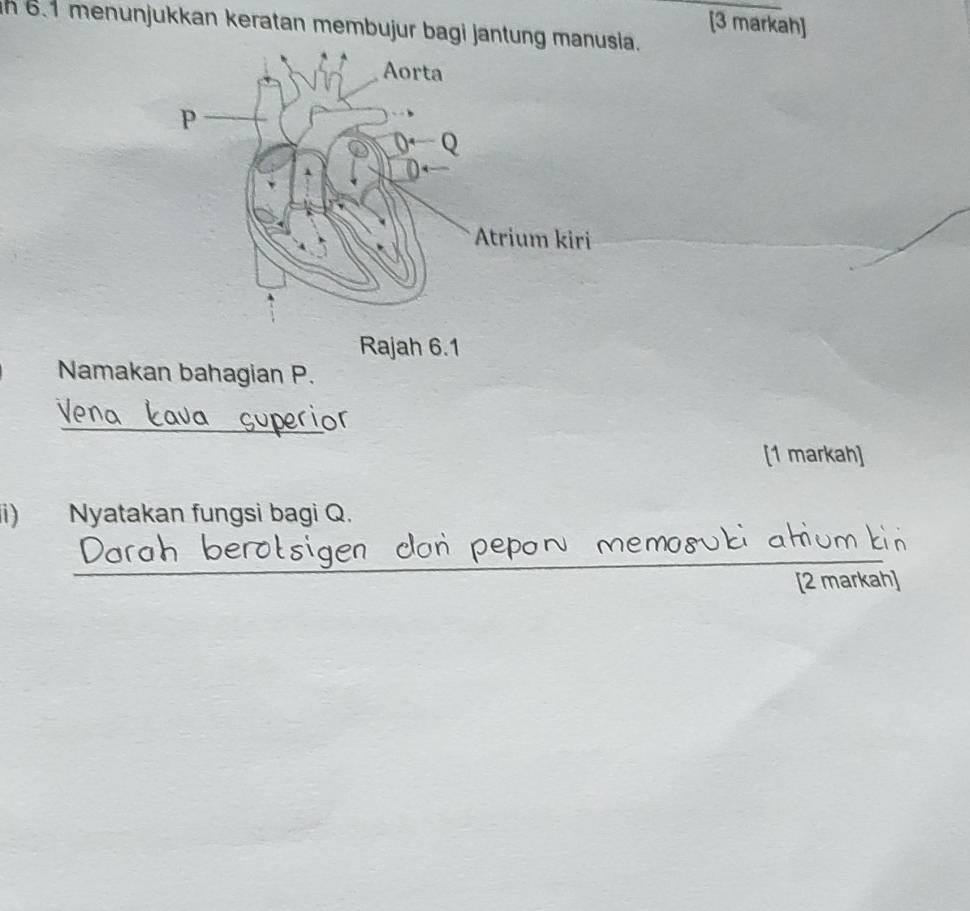 6.1 menunjukkan keratan membujur bagi jantung manusia.
[3 markah]
Aorta
P
Q
Atrium kiri
Rajah 6.1
Namakan bahagian P.
Vena kava superior
[1 markah]
ii) Nyatakan fungsi bagi Q.
Darah beroksigen dari peparu memasuki atrium kiri
[2 markah]